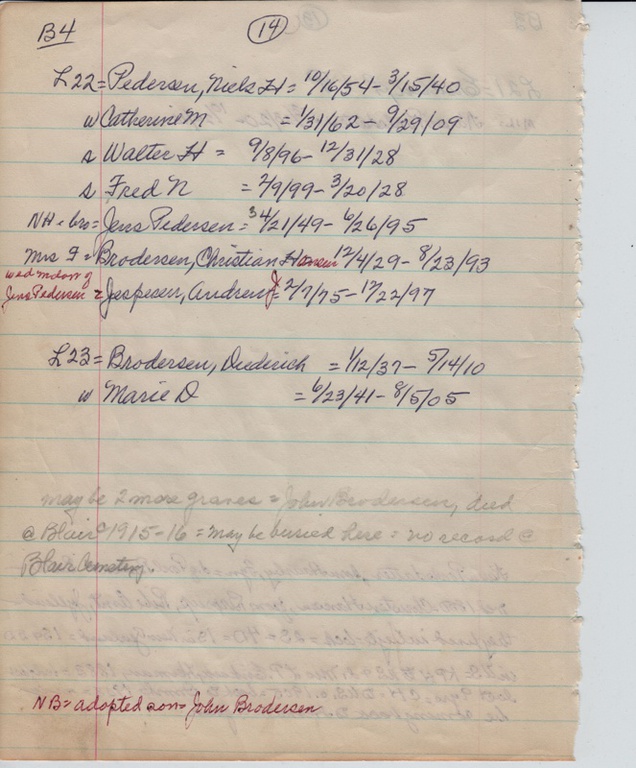 B4 14
L22 = Pedersen, Niels H = 10/16/54 - 3/15/40
w Catherine M = 1/31/62 - 9/29/09
s Walter H = 9/8/96 - 12/31/28
s Fred N = 2/9/99 - 3/20/28
NH - bro = Jens Pedersen = 3 4/21/49 - 6/26/95
Mrs F = Brodersen, Christian Hansen 12/4/29 - 8/23/93
Jens Pedersen = Jespesen, Andren J = 2/7/75 - 12/22/97
L23 = Brodersen, Diederich = 1/12/37 - 5/14/10
w Marie D = 6/23/41 - 8/5/05
maybe 2 more graves = John Brodersen, died
@ Blair 1915-16 = may be buried here = no record @
Blair Cemetery
NB = adopted son = John Brodersen